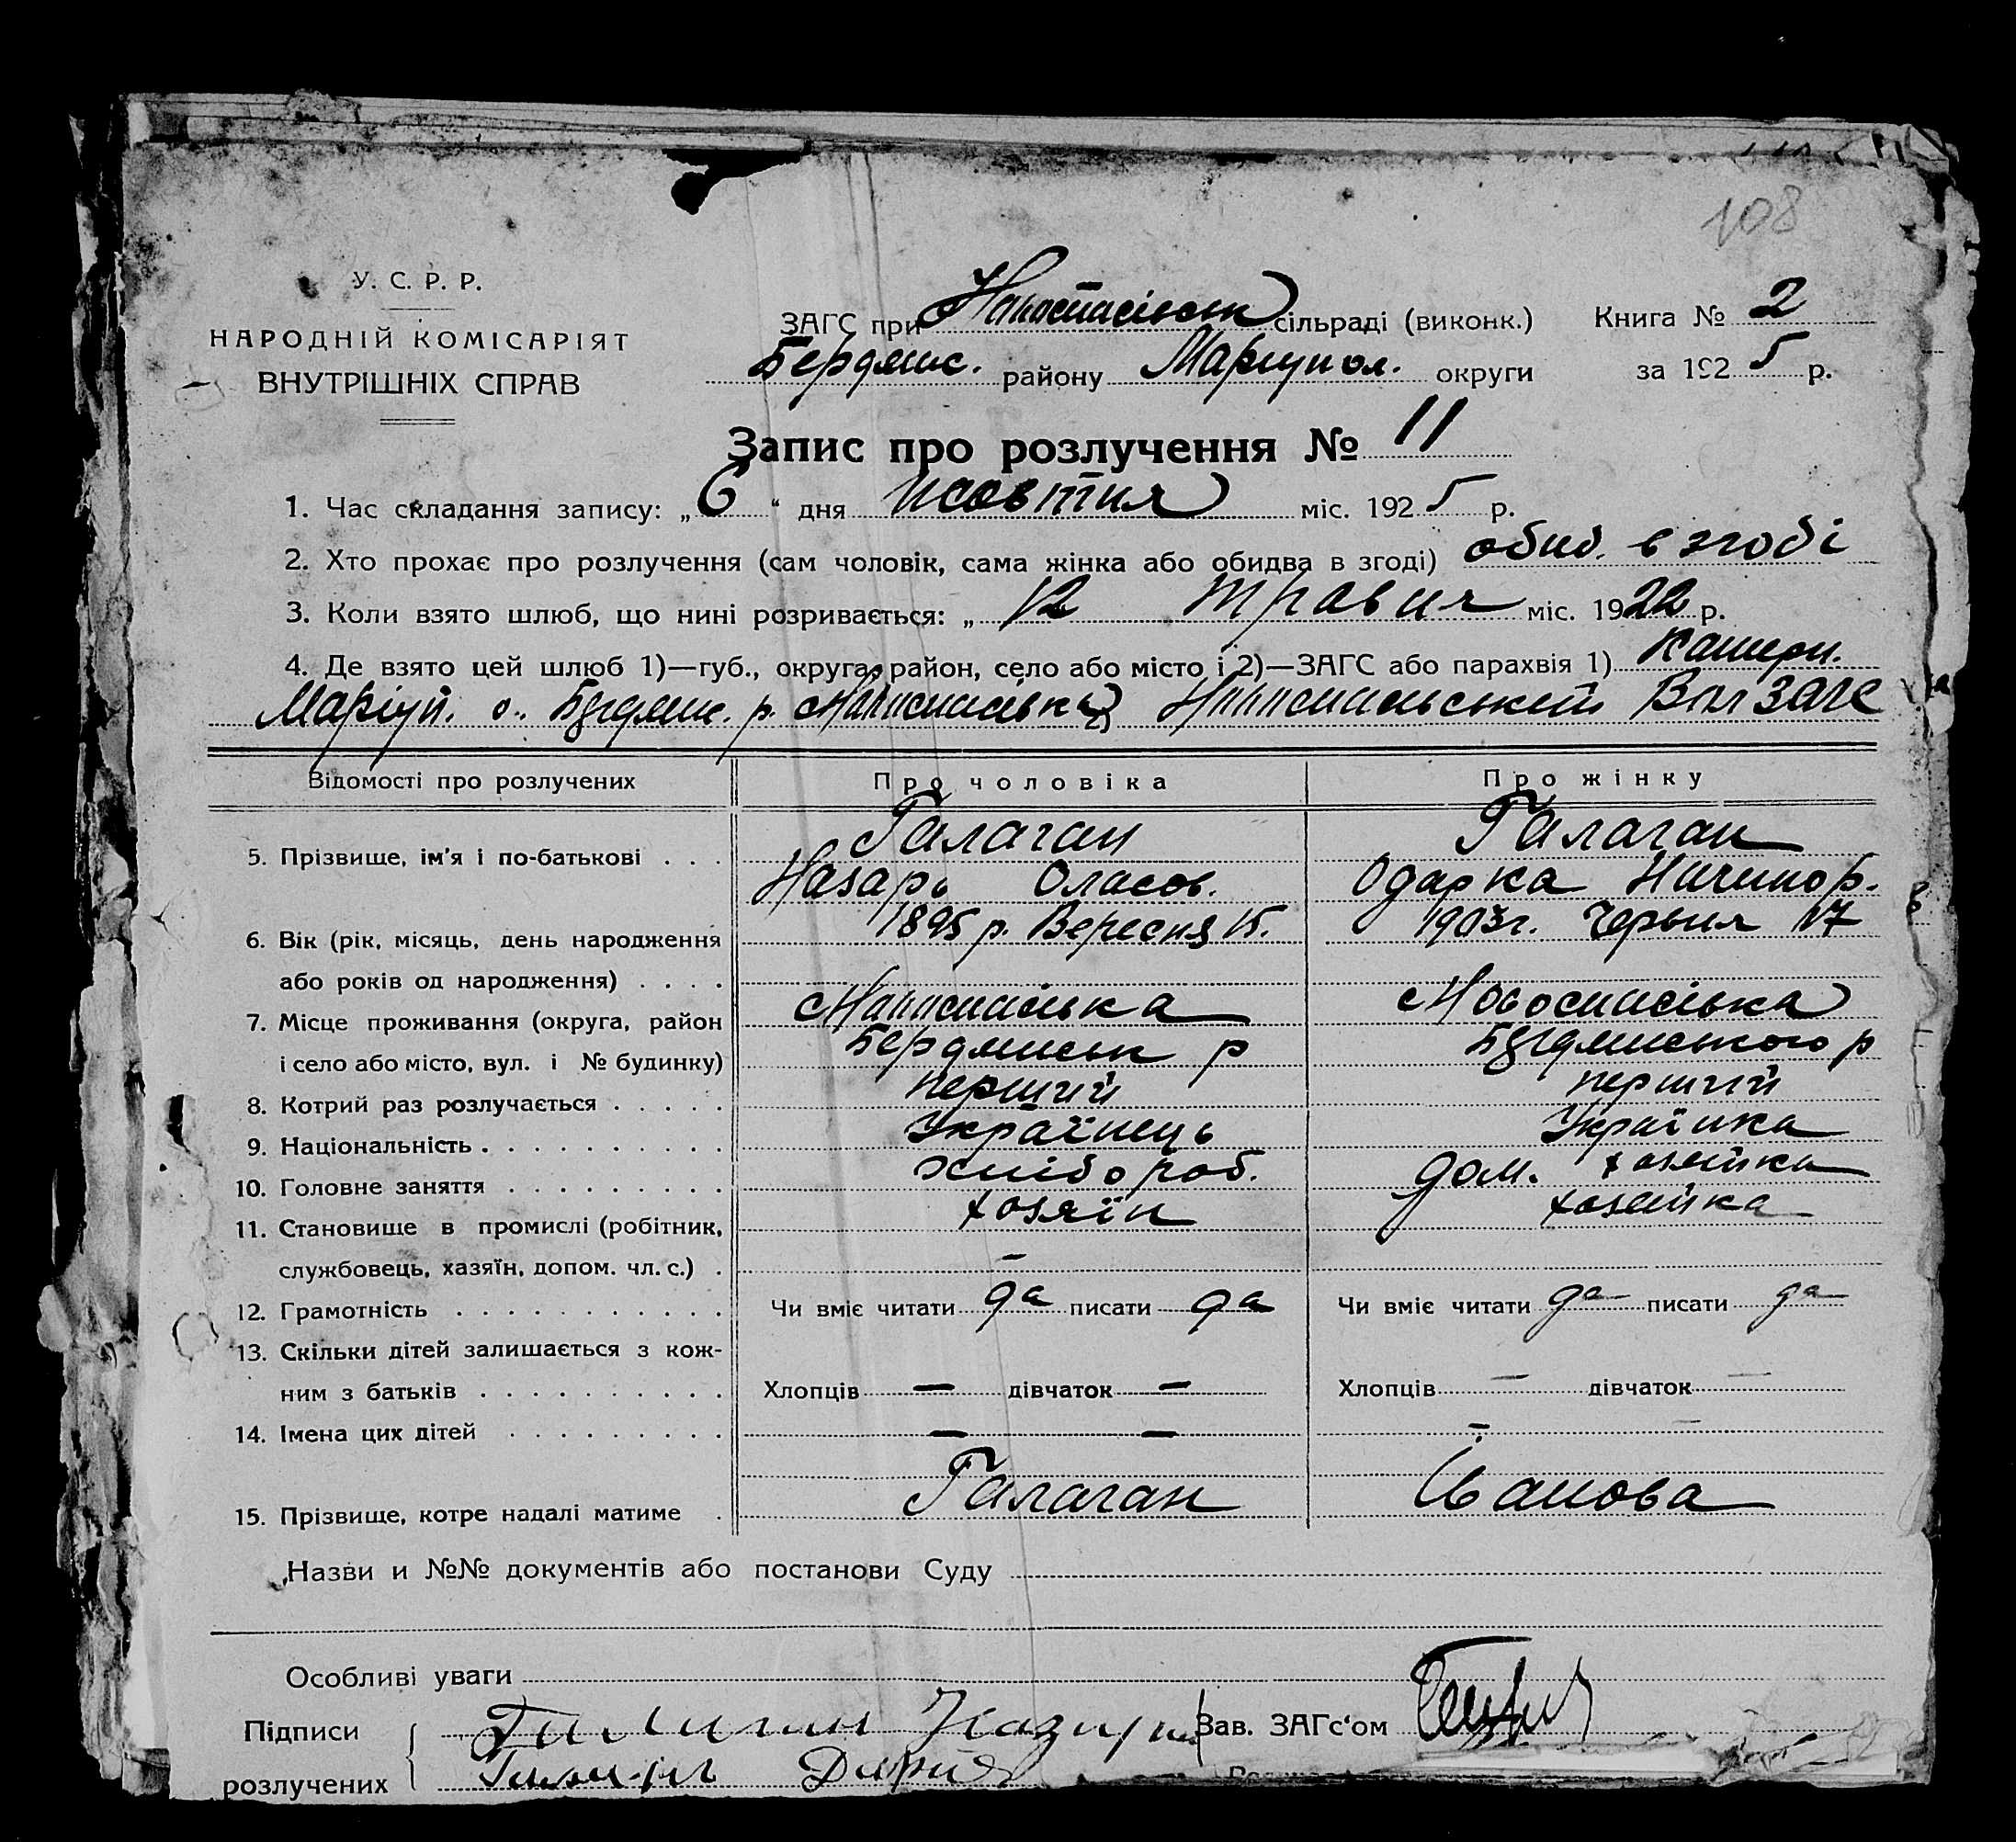 108
У. С. Р. Р.
НАРОДНІЙ КОМІСАРІЯТ
ВНУТРІШНІХ СПРАВ
ЗАГС при сільраді (виконк.)
Бердянс. району Маріупол. округи
Книга № 2
за 1925 р.
Запис про розлучення № 11
1. Час складання запису: „ 6 “ дня жовтня міс. 1925 р.
2. Хто прохає про розлучення (сам чоловік, сама жінка або обидва в згоді) обид. в згоді
3. Коли взято шлюб, що нині розривається: „ 12 травня міс. 1922 р.
4. Де взято цей шлюб 1)—губ., округа, район, село або місто і 2)—ЗАГС або парахвія 1) Катери.
Маріуп. о. Бердянс. р. ЗАГС
Відомості про розлучених Про чоловіка Про жінку
5. Прізвище, ім'я і по-батькові . . . Галаган Галаган
Назарь Оласов. Одарка Ничипор.
6. Вік (рік, місяць, день народження 1895 р. Вересня 15. 1903 г. Червня 17
або років од народження) . . . .
7. Місце проживання (округа, район Новоспасівка
і село або місто, вул. і № будинку) Бердянськ р Бердянського р
8. Котрий раз розлучається . . . . . перший перший
9. Національність . . . . . . . . . . Українець Українка
10. Головне заняття . . . . . . . . . хлібороб. дом. хозяйка
11. Становище в промислі (робітник, хозяїн хозяйка
службовець, хазяїн, допом. чл. с.) . –
12. Грамотність . . . . . . . . . . . Чи вміє читати да писати да Чи вміє читати да писати да
13. Скільки дітей залишається з кож-
ним з батьків . . . . . . . . . . Хлопців — дівчаток — Хлопців — дівчаток —
14. Імена цих дітей . . . . . . . . . — — — —
15. Прізвище, котре надалі матиме . Галаган Іванова
Назви и №№ документів або постанови Суду
Особливі уваги
Підписи Галаган Назар Зав. ЗАГс'ом
розлучених Дария